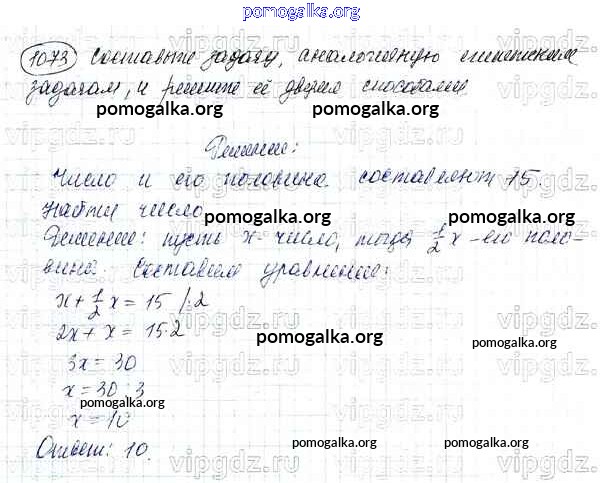 pomogalka.org
1073 Составьте задачу, аналогичную египетским
задачам, и решите её двумя способами
pomogalka.org pomogalka.org
Решение:
Число и его половина составляют 15.
Найти число
pomogalka.org pomogalka.org
Решение: пусть x - число, тогда 1/2 x - его поло-
вина. Составим уравнение:
x + 1/2 x = 15 /·2
2x + x = 15·2
pomogalka.org
3x = 30
pomogalka.org
x = 30 : 3
pomogalka.org
x = 10
Ответ: 10.
pomogalka.org pomogalka.org
vipgdz.org